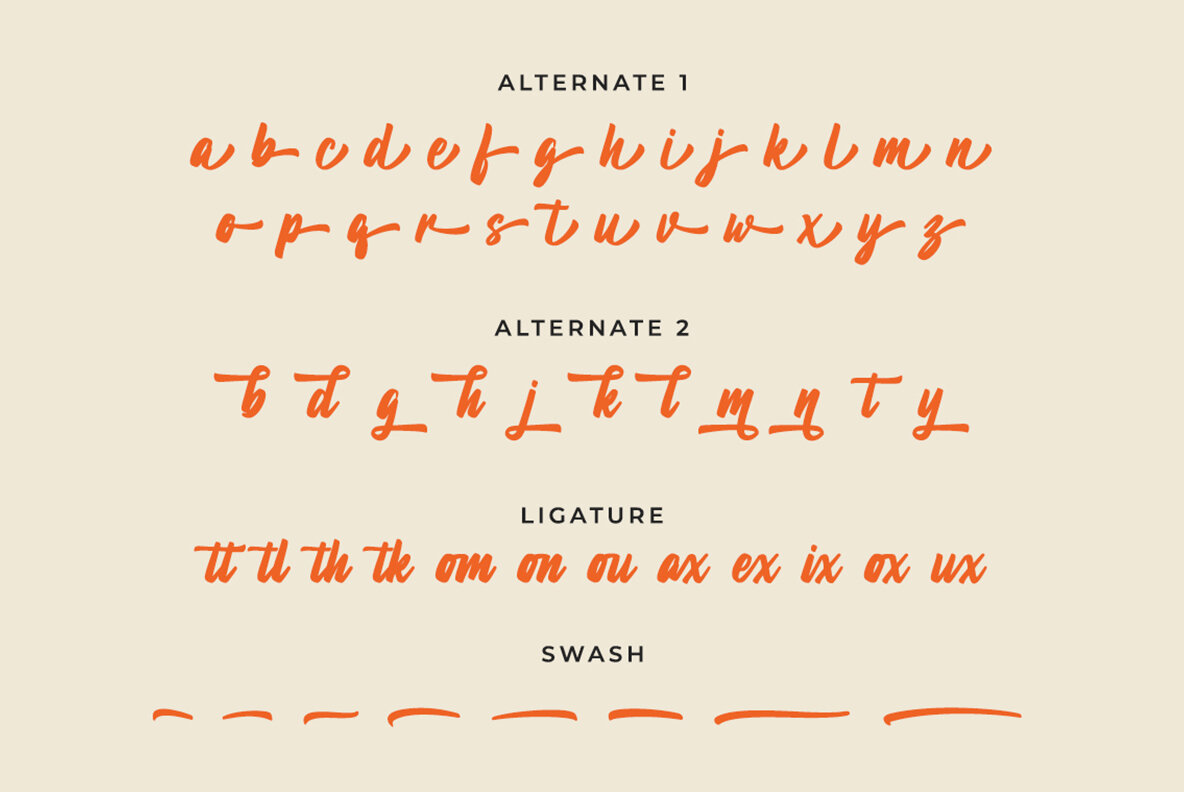 ALTERNATE 1
a b c d e f g h i j k l m n
o p q r s t u v w x y z
ALTERNATE 2
b d g h j k l m n t y
LIGATURE
tt tl th tk om on ou ax ex ix ox ux
SWASH